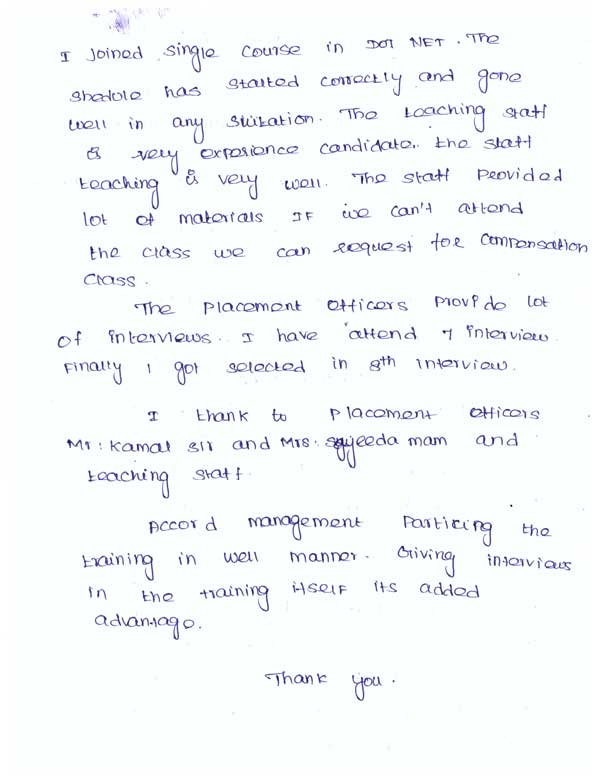 I Joined single course in DOT NET. The
shedule has started correctly and gone
well in any stutation. The teaching staff
is very experience candidate. the staff
teaching is very well. The staff Provided
lot of materials IF we can't attend
the class we can request for compensation
class.
The Placement officers Provide lot
of interviews. I have attend 7 interview
Finally I got selected in 8th interview.
I thank to Placement officers
Mr: Kamal sir and Mrs: sayeeda mam and
teaching staff.
Accord management Particing the
training in well manner. Giving interviews
in the training itself its added
advantage.
Thank you.